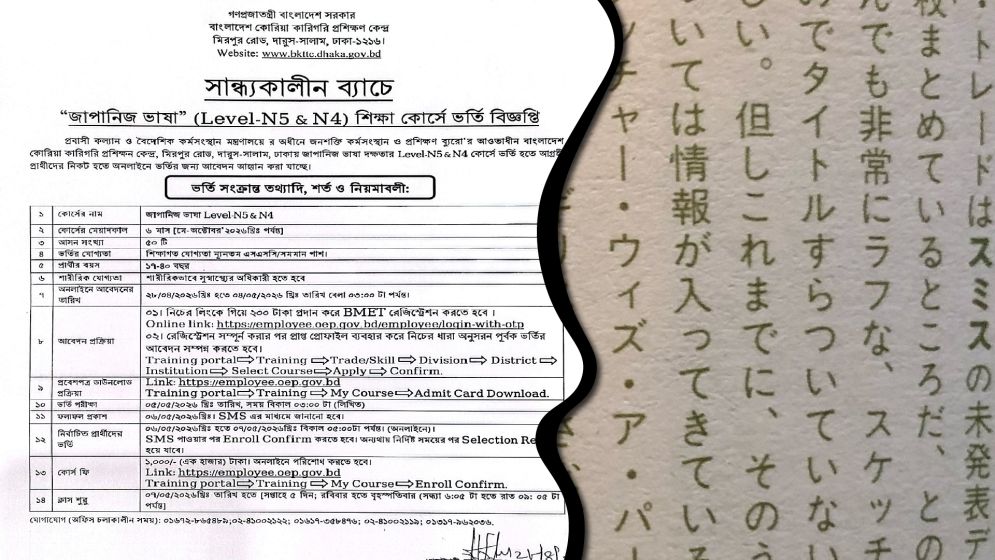 গণপ্রজাতন্ত্রী বাংলাদেশ সরকার
বাংলাদেশ কোরিয়া কারিগরি প্রশিক্ষণ কেন্দ্র
মিরপুর রোড, দারুস-সালাম, ঢাকা-১২১৬।
Website: www.bkttc.dhaka.gov.bd
সান্ধ্যকালীন ব্যাচে
“জাপানিজ ভাষা” (Level-N5 & N4) শিক্ষা কোর্সে ভর্তি বিজ্ঞপ্তি
প্রবাসী কল্যান ও বৈদেশিক কর্মসংস্থান মন্ত্রণালয়ে র অধীনে জনশক্তি কর্মসংস্থান ও প্রশিক্ষণ ব্যুরো'র আওতাধীন বাংলাদেশ
কোরিয়া কারিগরি প্রশিক্ষন কেন্দ্র, মিরপুর রোড, দারুস-সালাম, ঢাকায় জাপানিজ ভাষা দক্ষতার Level-N5 & N4 কোর্সে ভর্তি হতে আগ্রহী
প্রার্থীদের নিকট হতে অনলাইনে ভর্তির জন্য আবেদন আহ্বান করা যাচ্ছে।
ভর্তি সংক্রান্ত তথ্যাদি, শর্ত ও নিয়মাবলী:
১ কোর্সের নাম জাপানিজ ভাষা Level-N5 & N4
২ কোর্সের মেয়াদকাল ৬ মাস [মে-অক্টোবর'২০২৬খ্রিঃ পর্যন্ত]
৩ আসন সংখ্যা ৫০ টি
৪ ভর্তির যোগ্যতা শিক্ষাগত যোগ্যতা ন্যূনতম এসএসসি/সমমান পাশ।
৫ প্রার্থীর বয়স ১৭-৪০ বছর
৬ শারীরিক যোগ্যতা শারীরিকভাবে সুস্বাস্থ্যের অধিকারী হতে হবে
৭ অনলাইনে আবেদনের তারিখ ২৮/০৪/২০২৬খ্রিঃ হতে ০৪/০৫/২০২৬ খ্রিঃ তারিখ বেলা ০৩:০০ টা পর্যন্ত।
৮ আবেদন প্রক্রিয়া ০১। নিচের লিংকে গিয়ে ২০০ টাকা প্রদান করে BMET রেজিস্ট্রেশন করতে হবে ।
Online link: https://employee.oep.gov.bd/employee/login-with-otp
০২। রেজিস্ট্রেশন সম্পূর্ন করার পর প্রাপ্ত প্রোফাইল ব্যবহার করে নিচের ধারা অনুসরন পূর্বক ভর্তির
আবেদন সম্পন্ন করতে হবে।
Training portal⇨Training ⇨Trade/Skill ⇨Division⇨ District ⇨
Institution⇨ Select Course⇨Apply ⇨ Confirm.
৯ প্রবেশপত্র ডাউনলোড প্রক্রিয়া Link: https://employee.oep.gov.bd
Training portal⇨ Training ⇨ My Course⇨Admit Card Download.
১০ ভর্তি পরীক্ষা ০৫/০৫/২০২৬ খ্রিঃ তারিখ, সময় বিকাল ০৩:০০ টা (লিখিত)
১১ ফলাফল প্রকাশ ০৬/০৫/২০২৬খ্রিঃ। SMS এর মাধ্যমে জানানো হবে।
১২ নির্বাচিত প্রার্থীদের ভর্তি ০৬/০৫/২০২৬খ্রিঃ হতে ০৭/০৫/২০২৬খ্রিঃ বিকাল ০৫:০০টা পর্যন্ত। (অনলাইনে)।
SMS পাওয়ার পর Enroll Confirm করতে হবে। অন্যথায় নির্দিষ্ট সময়ের পর Selection Re
হয়ে যাবে।
১৩ কোর্স ফি ১,০০০/- (এক হাজার) টাকা। অনলাইনে পরিশোধ করতে হবে।
Link: https://employee.oep.gov.bd
Training portal⇨ Training ⇨ My Course⇨ Enroll Confirm.
১৪ ক্লাস শুরু ০৭/০৫/২০২৬খ্রিঃ তারিখ হতে [সপ্তাহে ৫ দিন; রবিবার হতে বৃহস্পতিবার (সন্ধ্যা ৬:০৫ টা হতে রাত ০৯: ০৫ টা
পর্যন্ত]
যোগাযোগ (অফিস চলাকালীন সময়): ০১৬৭২-৮৬৫৪৮৯;০২-৪১০০২১২২; ০১৬১৭-৩৫৮৪৭৬; ০২-৪১০০২১১৯; ০১৩১৭-৯৬২০৩৬.
・トレードはスミスの未発表デ
枚まとめているところだ、との
んでも非常にラフな、スケッチ
のでタイトルすらついていない
い。但しこれまでに そのう
いては情報が入ってきている
ッチャー・ウィズ・ア・パー